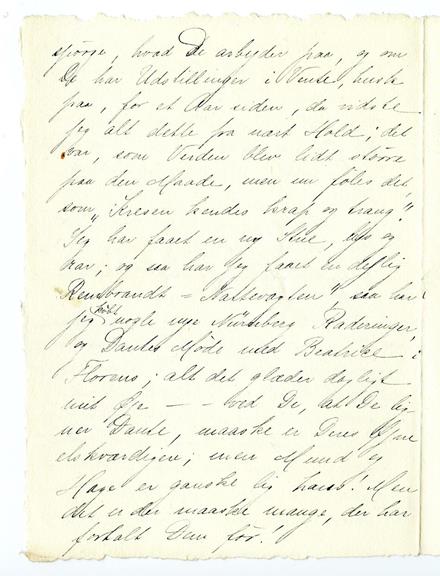 spørge, hvad De arbejder paa, og om
De har Udstillinger i Vente, husk
paa, for et Aar siden, da vidste
jeg alt dette fra nært Hold; det
var, som Verden blev lidt større
paa den Maade, men nu føles det,
som „Kresen kendes knap og trang“.
Jeg har faaet en ny Stue, lys og
rar; og saa har jeg faaet en dejlig
Rembrandt = „Nattevagten“, saa har
jeg købt nogle nye Nürnberg Raderinger,
og Dantes Møde med Beatrice i
Florens; alt det glæder dagligt
mit Øje — — ved De, at De lig-
ner Dante, maaske er Deres Øjne
elskværdigere; men Mund og
Hage er ganske lig hans! Men
det er der maaske mange, der har
fortalt Dem før!